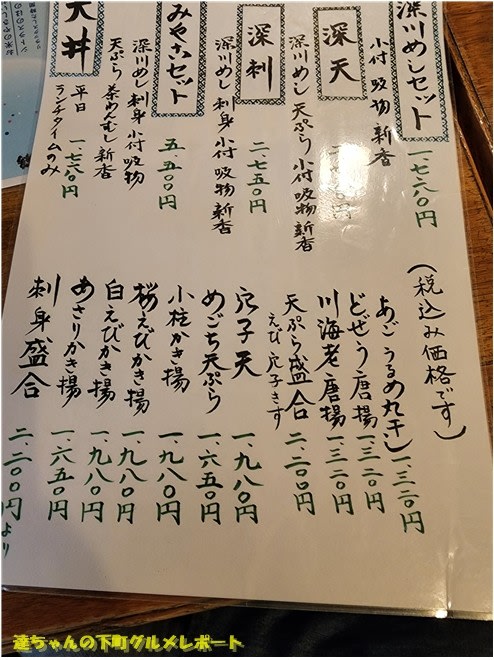 深川めしセット
小付 吸物 新香
一、七六〇円
深天
深川めし 天ぷら 小付 吸物 新香
深刺
深川めし 刺身 小付 吸物 新香
二、七五〇円
みやこセット
深川めし 刺身 小付 吸物
天ぷら 茶わんむし 新香
五、五〇〇円
天丼
平日
ランチタイムのみ
一、七六〇円
(税込み価格です)
あご うるめ丸干し 一、三二〇円
どぜう唐揚 一、三二〇円
川海老唐揚 一、三二〇円
天ぷら盛合 二、二〇〇円
えび 穴子 きす
穴子天 一、九八〇円
めごち天ぷら 一、六五〇円
小柱かき揚 一、九八〇円
桜えびかき揚 一、九八〇円
白えびかき揚 一、九八〇円
あさりかき揚 一、六五〇円
刺身盛合 二、二〇〇円より
達ちゃんの下町グルメレポート